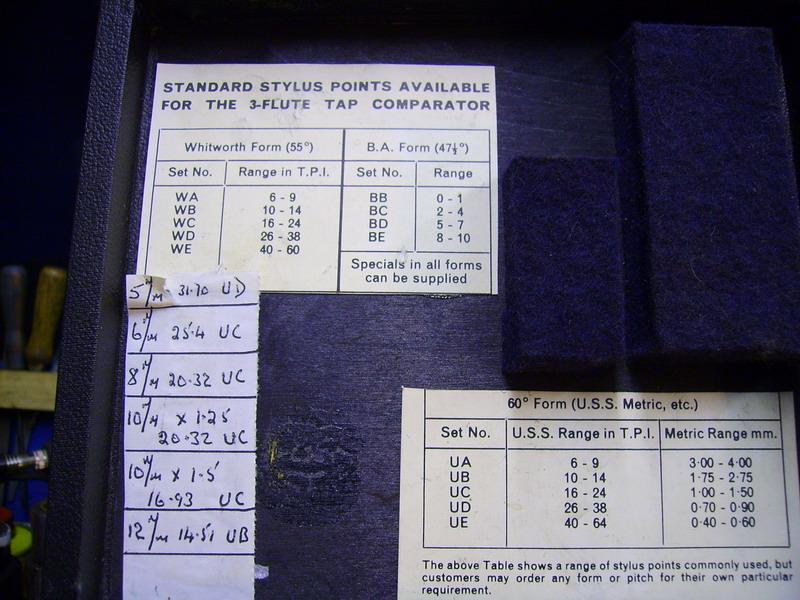 STANDARD STYLUS POINTS AVAILABLE
FOR THE 3-FLUTE TAP COMPARATOR
Whitworth Form (55°) B.A. Form (47½°)
Set No. Range in T.P.I. Set No. Range
WA 6 - 9 BB 0 - 1
WB 10 - 14 BC 2 - 4
WC 16 - 24 BD 5 - 7
WD 26 - 38 BE 8 - 10
WE 40 - 60
Specials in all forms
can be supplied
5 M/M 31.70 UD
6 M/M 25.4 UC
8 M/M 20.32 UC
10 M/M x 1.25
20.32 UC
10 M/M x 1.5
16.93 UC
12 M/M 14.51 UB
60° Form (U.S.S. Metric, etc.)
Set No. U.S.S. Range in T.P.I. Metric Range mm.
UA 6 - 9 3·00 - 4·00
UB 10 - 14 1·75 - 2·75
UC 16 - 24 1·00 - 1·50
UD 26 - 38 0·70 - 0·90
UE 40 - 64 0·40 - 0·60
The above Table shows a range of stylus points commonly used, but
customers may order any form or pitch for their own particular
requirement.